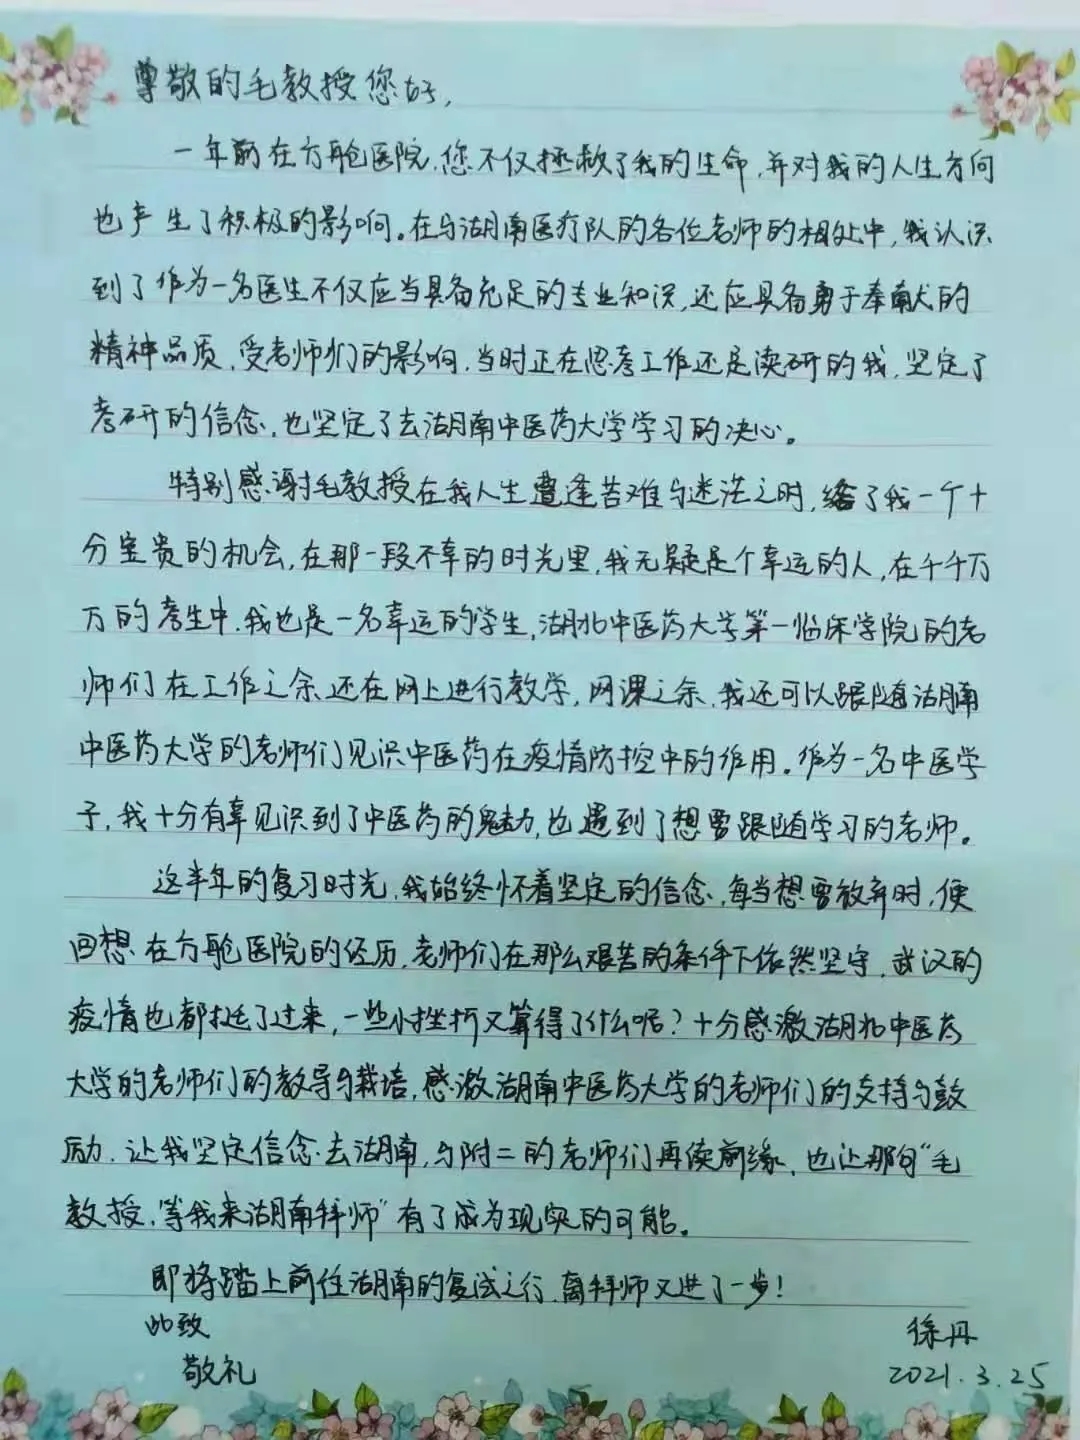 尊敬的毛教授您好,
一年前在方舱医院,您不仅拯救了我的生命,并对我的人生方向
也产生了积极的影响。在与湖南医疗队的各位老师的相处中,我认识
到了作为一名医生不仅应当具备充足的专业知识,还应具备勇于奉献的
精神品质,受老师们的影响,当时正在思考工作还是读研的我,坚定了
考研的信念,也坚定了去湖南中医药大学学习的决心。
特别感谢毛教授在我人生遭逢苦难与迷茫之时,给了我一个十
分宝贵的机会,在那一段不幸的时光里,我无疑是个幸运的人,在千千万
万的考生中,我也是一名幸运的学生,湖北中医药大学第一临床学院的老
师们在工作之余还在网上进行教学,网课之余,我还可以跟随湖南
中医药大学的老师们见识中医药在疫情防控中的作用。作为一名中医学
子,我十分有幸见识到了中医药的魅力,也遇到了想要跟随学习的老师。
这半年的复习时光,我始终怀着坚定的信念,每当想要放弃时,便
回想在方舱医院的经历,老师们在那么艰苦的条件下依然坚守,武汉的
疫情也都挺了过来,一些小挫折又算得了什么呢?十分感激湖北中医药
大学的老师们的教导与栽培,感激湖南中医药大学的老师们的支持与鼓
励,让我坚定信念去湖南,与附二的老师们再续前缘,也让那句“毛
教授,等我来湖南拜师”有了成为现实的可能。
即将踏上前往湖南的复试之行,离拜师又进了一步!
此致
徐丹
敬礼
2021.3.25